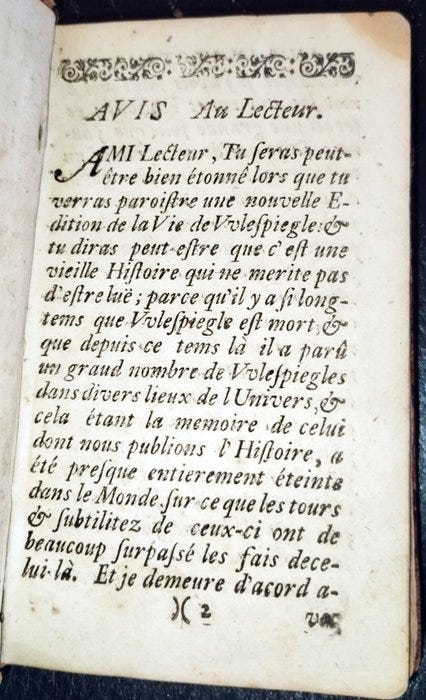 AVIS Au Lecteur.
AMI Lecteur, Tu ſeras peut-
être bien étonné lors que tu
verras paroiſtre une nouvelle E-
dition de la Vie de Vvleſpiegle: &
tu diras peut-eſtre que c'eſt une
vieille Hiſtoire qui ne merite pas
d'eſtre luë; parce qu'il y a ſi long-
tems que Vvleſpiegle eſt mort, &
que depuis ce tems là il a parû
un graud nombre de Vvleſpiegles
dans divers lieux de l'Univers, &
cela étant la memoire de celui
dont nous publions l'Hiſtoire, a
été preſque entierement éteinte
dans le Monde ſur ce que les tours
& ſubtilitez de ceux-ci ont de
beaucoup ſurpaſſé les fais dece-
lui-là. Et je demeure d'acord a-
)( 2